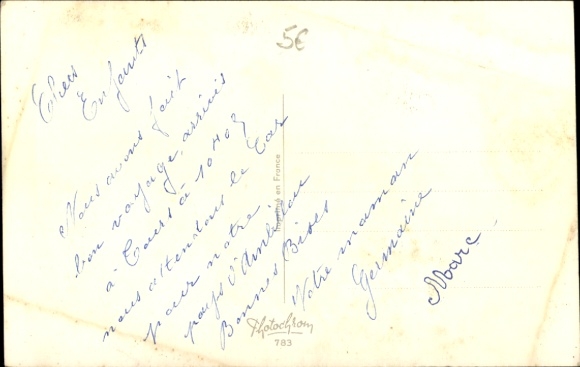 5€
Chers
Enfants
Nous avons fait
bon voyage, arrivés
à Tours à 10h03
nous attendons le Car
pour notre
pays d'
Bonnes Bises
Votre maman
Germaine
Marc
Imprimé en France
Photochrom
783